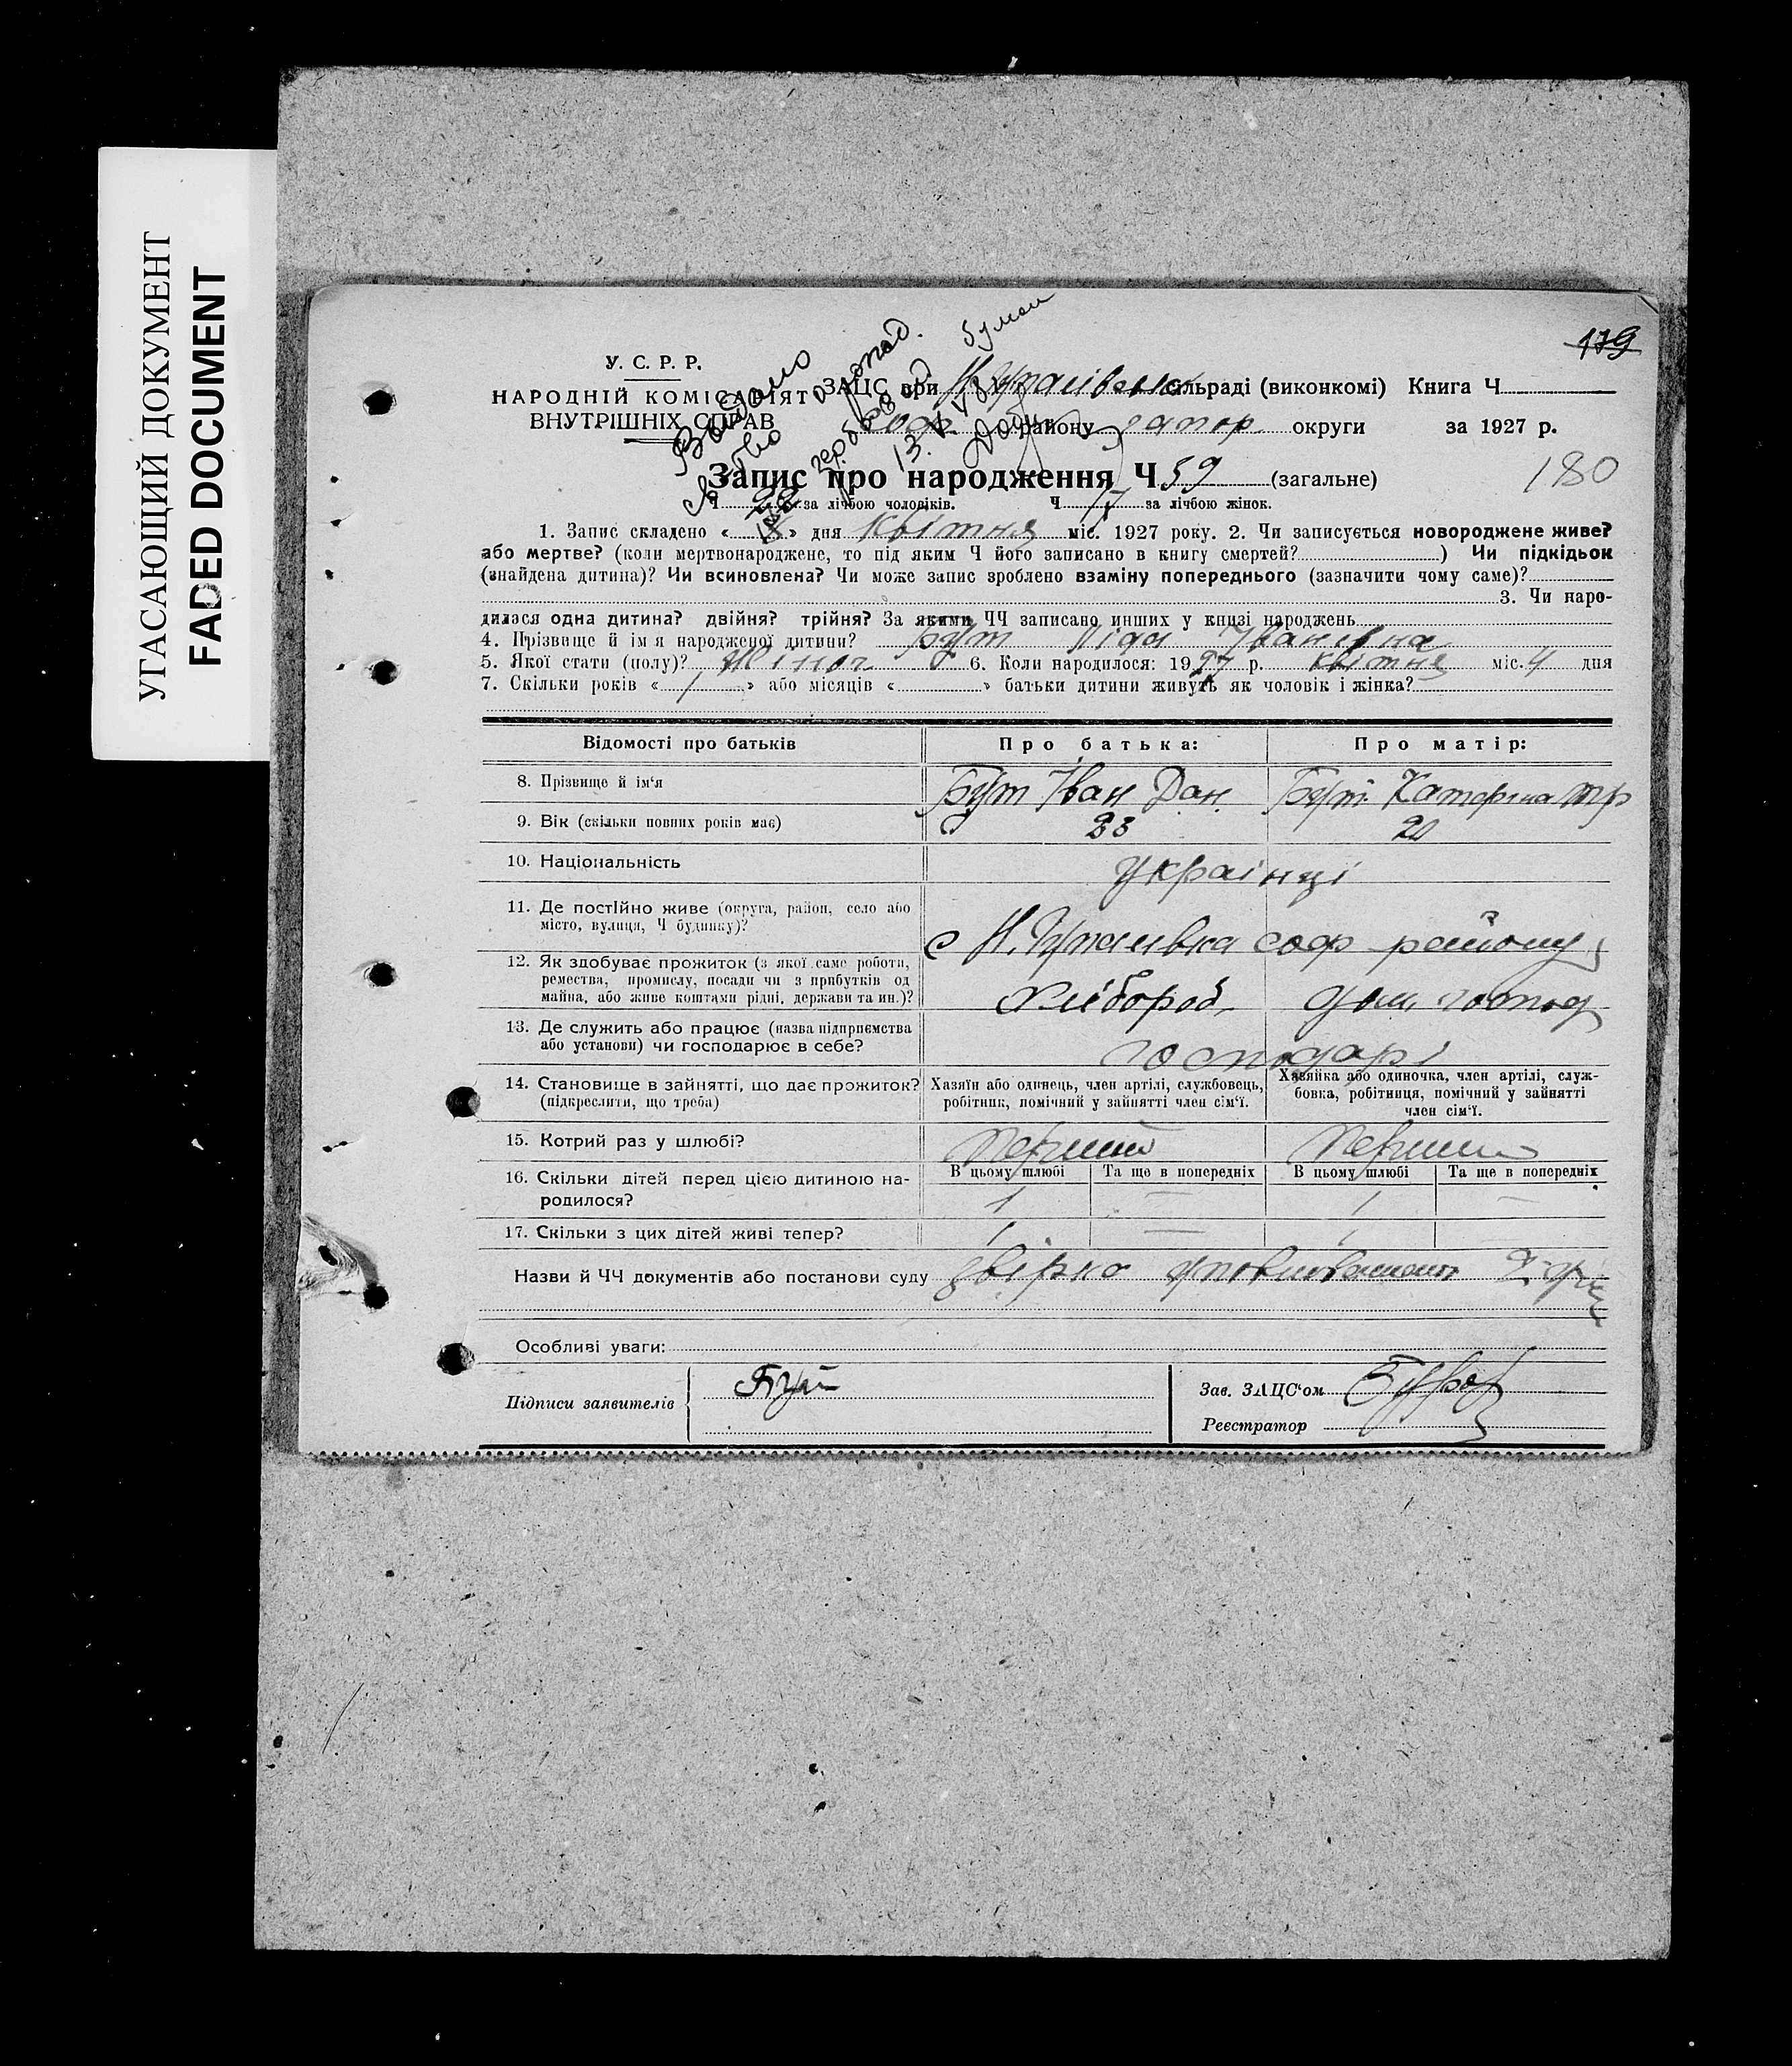 УГАСАЮЩИЙ ДОКУМЕНТ
FADED DOCUMENT
179
180
Выдано
У. С. Р. Р.
НАРОДНІЙ КОМІСАРІЯТ
ВНУТРІШНІХ СПРАВ
ЗАЦС при сільраді (виконкомі) Книга Ч
Соф. району Запор. округи за 1927 р.
Запис про народження Ч 59 (загальне)
Ч за лічбою чоловіків. Ч 17 за лічбою жінок.
1. Запис складено « » дня Квітня міс. 1927 року. 2. Чи записується новороджене живе?
або мертве? (коли мертвонароджене, то під яким Ч його записано в книгу смертей? ) Чи підкідьок
(знайдена дитина)? Чи всиновлена? Чи може запис зроблено взаміну попереднього (зазначити чому саме)?
3. Чи наро-
дилася одна дитина? двійня? трійня? За якими ЧЧ записано инших у книзі народжень
4. Прізвище й ім я народженої дитини? Бут Ліда Іванівна
5. Якої стати (полу)? Жіноч 6. Коли народилося: 1927 р. Квітня міс. 4 дня
7. Скільки років « 1 » або місяців « » батьки дитини живуть як чоловік і жінка?
Відомості про батьків Про батька: Про матір:
8. Прізвище й ім'я Бут Іван Дан. Бут Катерина
9. Вік (скільки повних років має) 23 20
10. Національність Українці
11. Де постійно живе (округа, район, село або
місто, вулиця, Ч будинку)? с Соф району
12. Як здобуває прожиток (з якої саме роботи,
ремества, промислу, посади чи з прибутків од
майна, або живе коштами рідні, держави та ин.)? Хлібороб. дом. господ
13. Де служить або працює (назва підприємства
або установи) чи господарює в себе? господарі
14. Становище в зайнятті, що дає прожиток?
(підкреслити, що треба)
Хазяїн або одинець, член артілі, службовець,
робітник, помічний у зайнятті член сім'ї.
Хазяйка або одиночка, член артілі, служ-
бовка, робітниця, помічний у зайнятті
член сім'ї.
15. Котрий раз у шлюбі? Перший Перший
16. Скільки дітей перед цією дитиною на-
родилося?
В цьому шлюбі Та ще в попередніх В цьому шлюбі Та ще в попередніх
1 — 1 —
17. Скільки з цих дітей живі тепер? 1 — 1
Назви й ЧЧ документів або постанови суду
Особливі уваги:
Підписи заявителів Бут
Зав. ЗАЦС'ом
Реєстратор